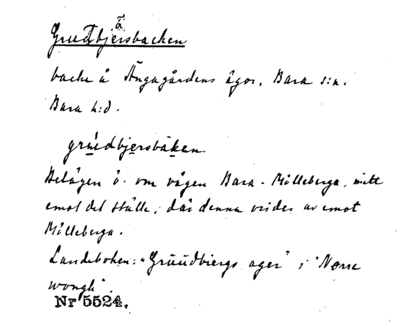 Grundbjersbacken
backe å Ängagårdens ägor, Bara s:n.
Bara h:d.
grundbjersbaken.
Belägen ö. om vägen Bara - Mölleberga, mitt
emot det ställe, där denna vrides av emot
Mölleberga.
Landeboken: "Gruudbiergs ager" i "Norre
wongh".
Nr 5524.